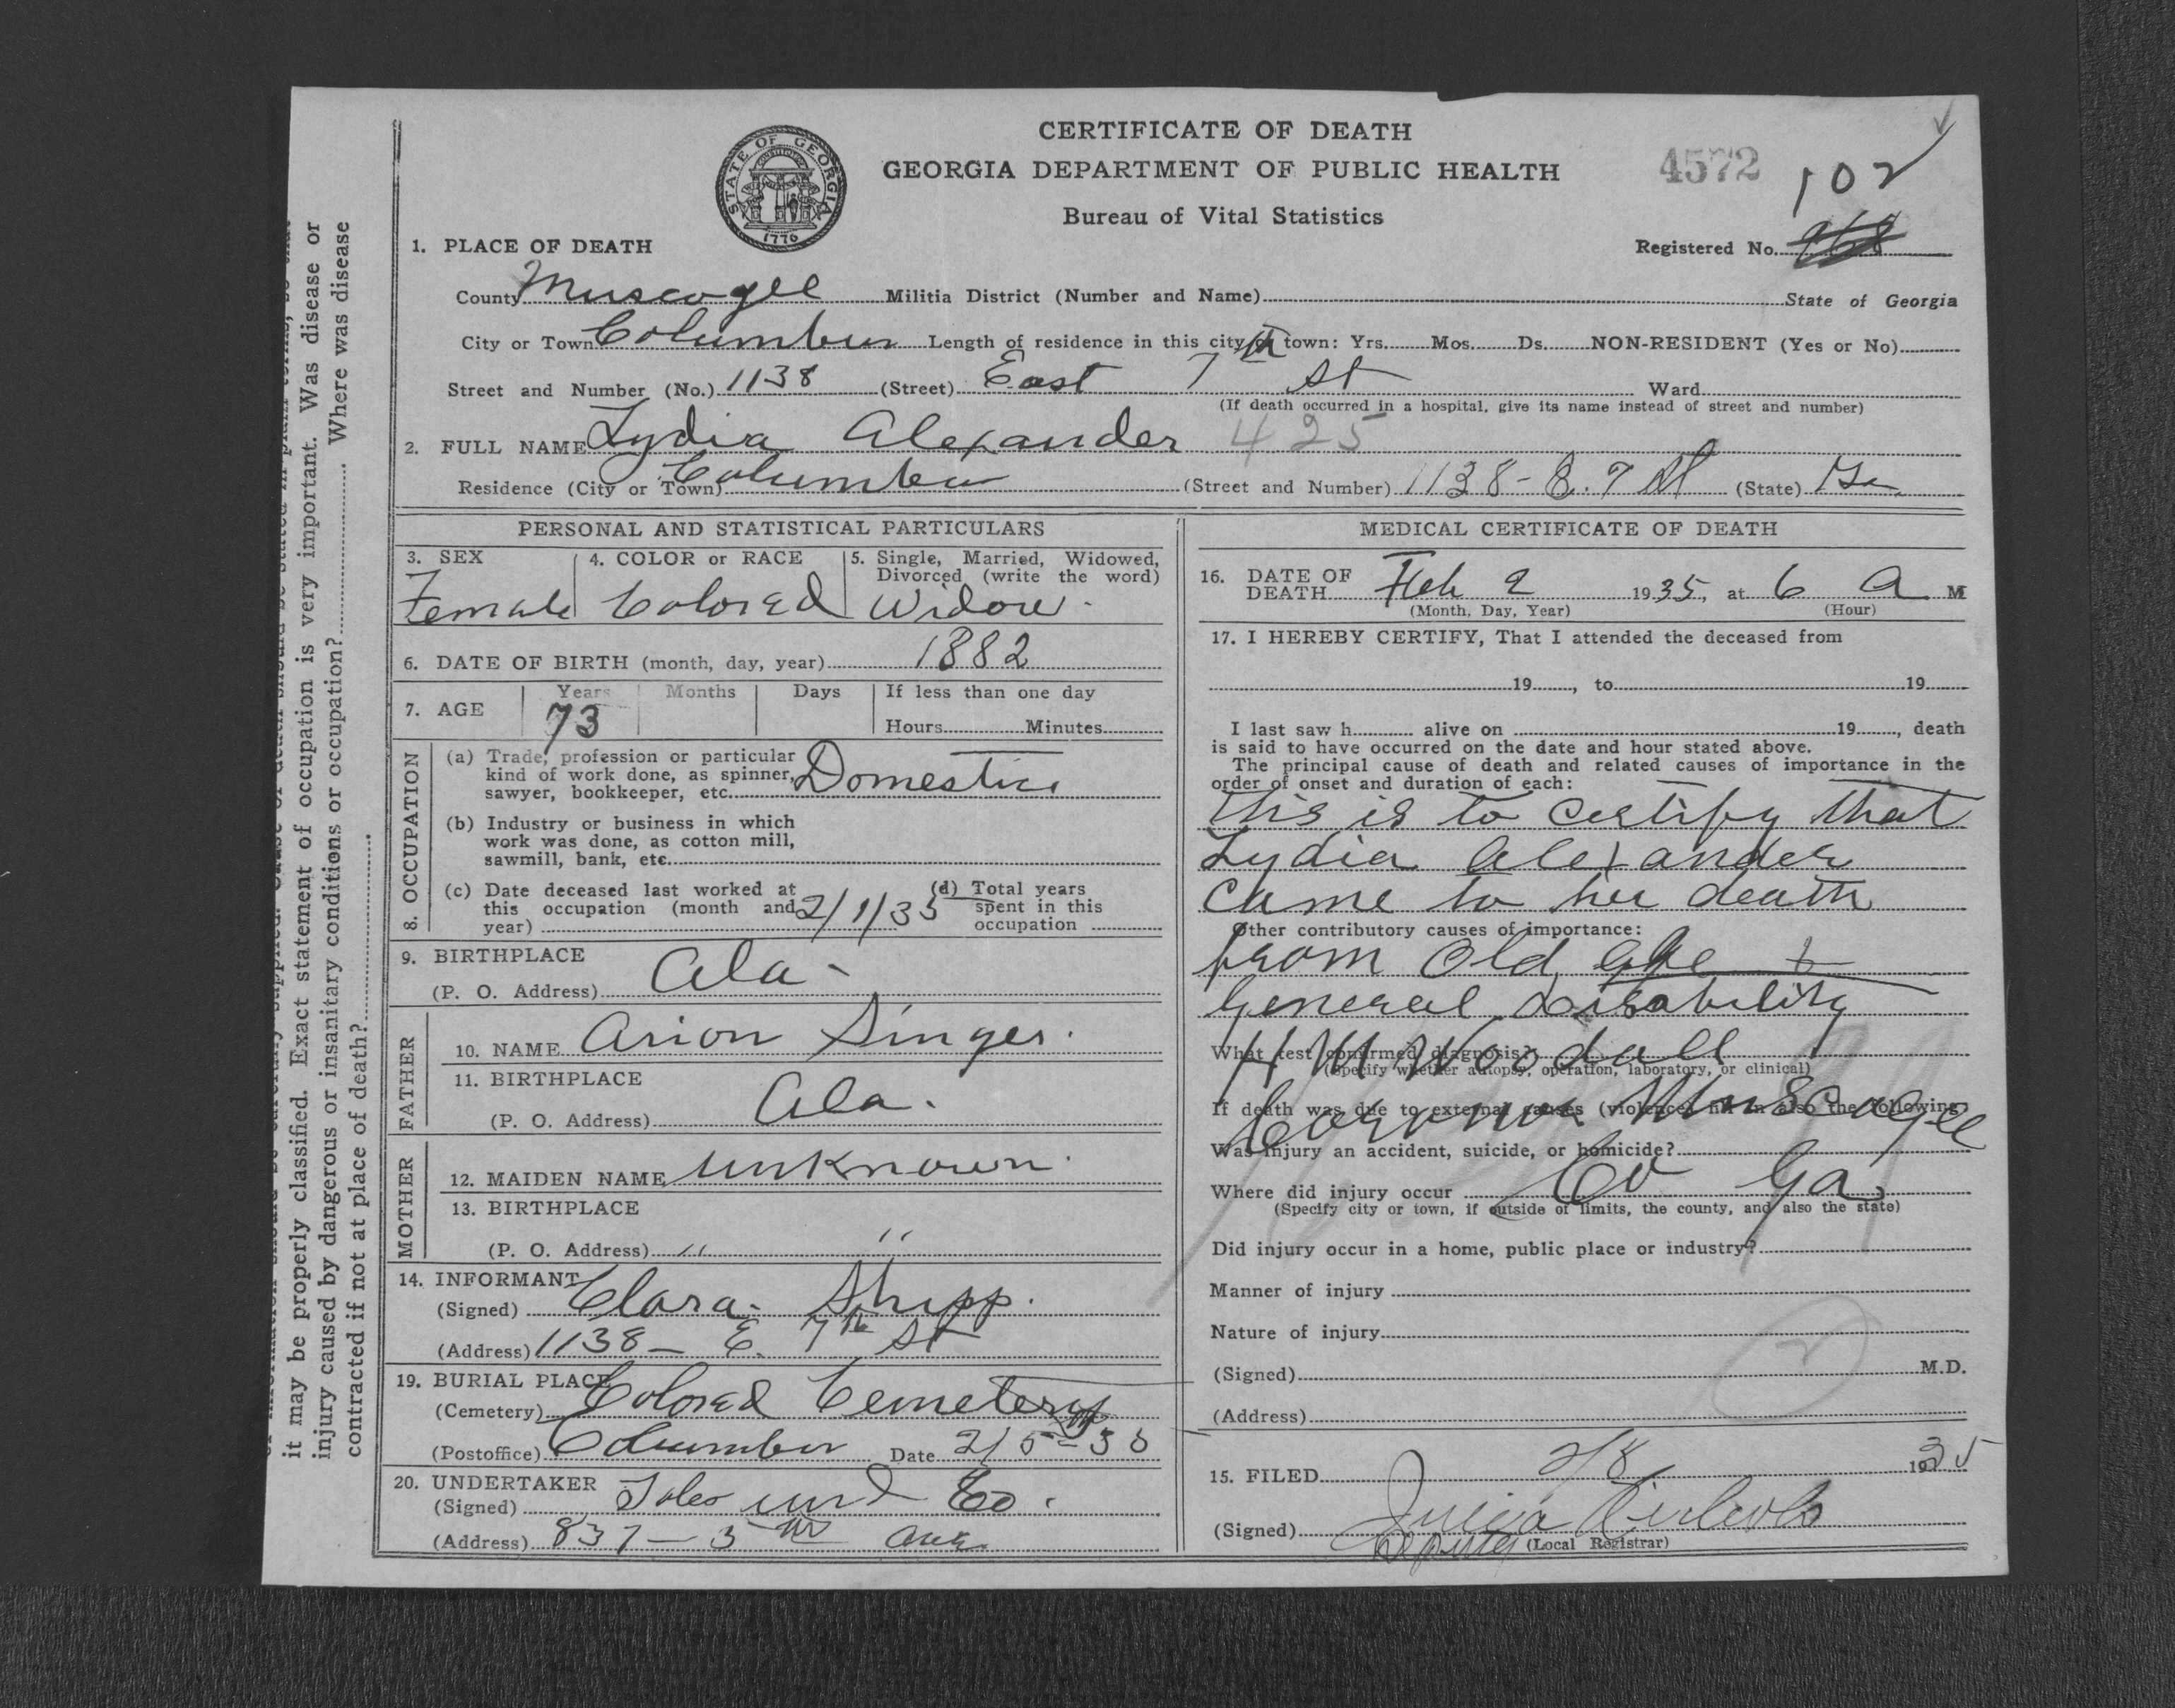 CERTIFICATE OF DEATH
GEORGIA DEPARTMENT OF PUBLIC HEALTH
Bureau of Vital Statistics
STATE OF GEORGIA
CONSTITUTION
1776
4572
102
Registered No. 968
1. PLACE OF DEATH
County Muscogee Militia District (Number and Name) State of Georgia
City or Town Columbus Length of residence in this city or town: Yrs. Mos. Ds. NON-RESIDENT (Yes or No)
Street and Number (No.) 1138 (Street) East 7th St Ward
(If death occurred in a hospital, give its name instead of street and number)
2. FULL NAME Lydia Alexander 425
Residence (City or Town) Columbus (Street and Number) 1138 - E. 7 St (State) Ga
PERSONAL AND STATISTICAL PARTICULARS
3. SEX Female
4. COLOR or RACE Colored
5. Single, Married, Widowed, Divorced (write the word) Widow
6. DATE OF BIRTH (month, day, year) 1882
7. AGE Years 73 Months Days If less than one day
Hours Minutes
8. OCCUPATION
(a) Trade, profession or particular
kind of work done, as spinner,
sawyer, bookkeeper, etc. Domestic
(b) Industry or business in which
work was done, as cotton mill,
sawmill, bank, etc.
(c) Date deceased last worked at
this occupation (month and
year) 2/1/35
(d) Total years
spent in this
occupation
9. BIRTHPLACE
(P. O. Address) Ala -
FATHER
10. NAME Arion Singer.
11. BIRTHPLACE
(P. O. Address) Ala.
MOTHER
12. MAIDEN NAME unknown
13. BIRTHPLACE
(P. O. Address) " "
14. INFORMANT
(Signed) Clara Shipp.
(Address) 1138 - E. 7th St
19. BURIAL PLACE
(Cemetery) Colored Cemetery
(Postoffice) Columbus Date 2/5-35
20. UNDERTAKER
(Signed) und Co.
(Address) 837 - 5th Ave
MEDICAL CERTIFICATE OF DEATH
16. DATE OF DEATH Feb 2 1935, at 6 A M
(Month, Day, Year) (Hour)
17. I HEREBY CERTIFY, That I attended the deceased from
19 , to 19
I last saw h alive on 19 , death
is said to have occurred on the date and hour stated above.
The principal cause of death and related causes of importance in the
order of onset and duration of each:
This is to certify that
Lydia Alexander
came to her death
Other contributory causes of importance:
from Old age &
General Disability
What test confirmed diagnosis?
(Specify whether autopsy, operation, laboratory, or clinical)
H M Woodall
If death was due to external causes (violence) fill in also the following:
Coroner Muscogee
Was injury an accident, suicide, or homicide?
Co Ga
Where did injury occur
(Specify city or town, if outside of limits, the county, and also the state)
Did injury occur in a home, public place or industry?
Manner of injury
Nature of injury
(Signed) M.D.
(Address)
15. FILED 2/8 1935
(Signed) Julia
Deputy (Local Registrar)
it may be properly classified. Exact statement of occupation is very important. Was disease or
injury caused by dangerous or insanitary conditions or occupation? Where was disease
contracted if not at place of death?